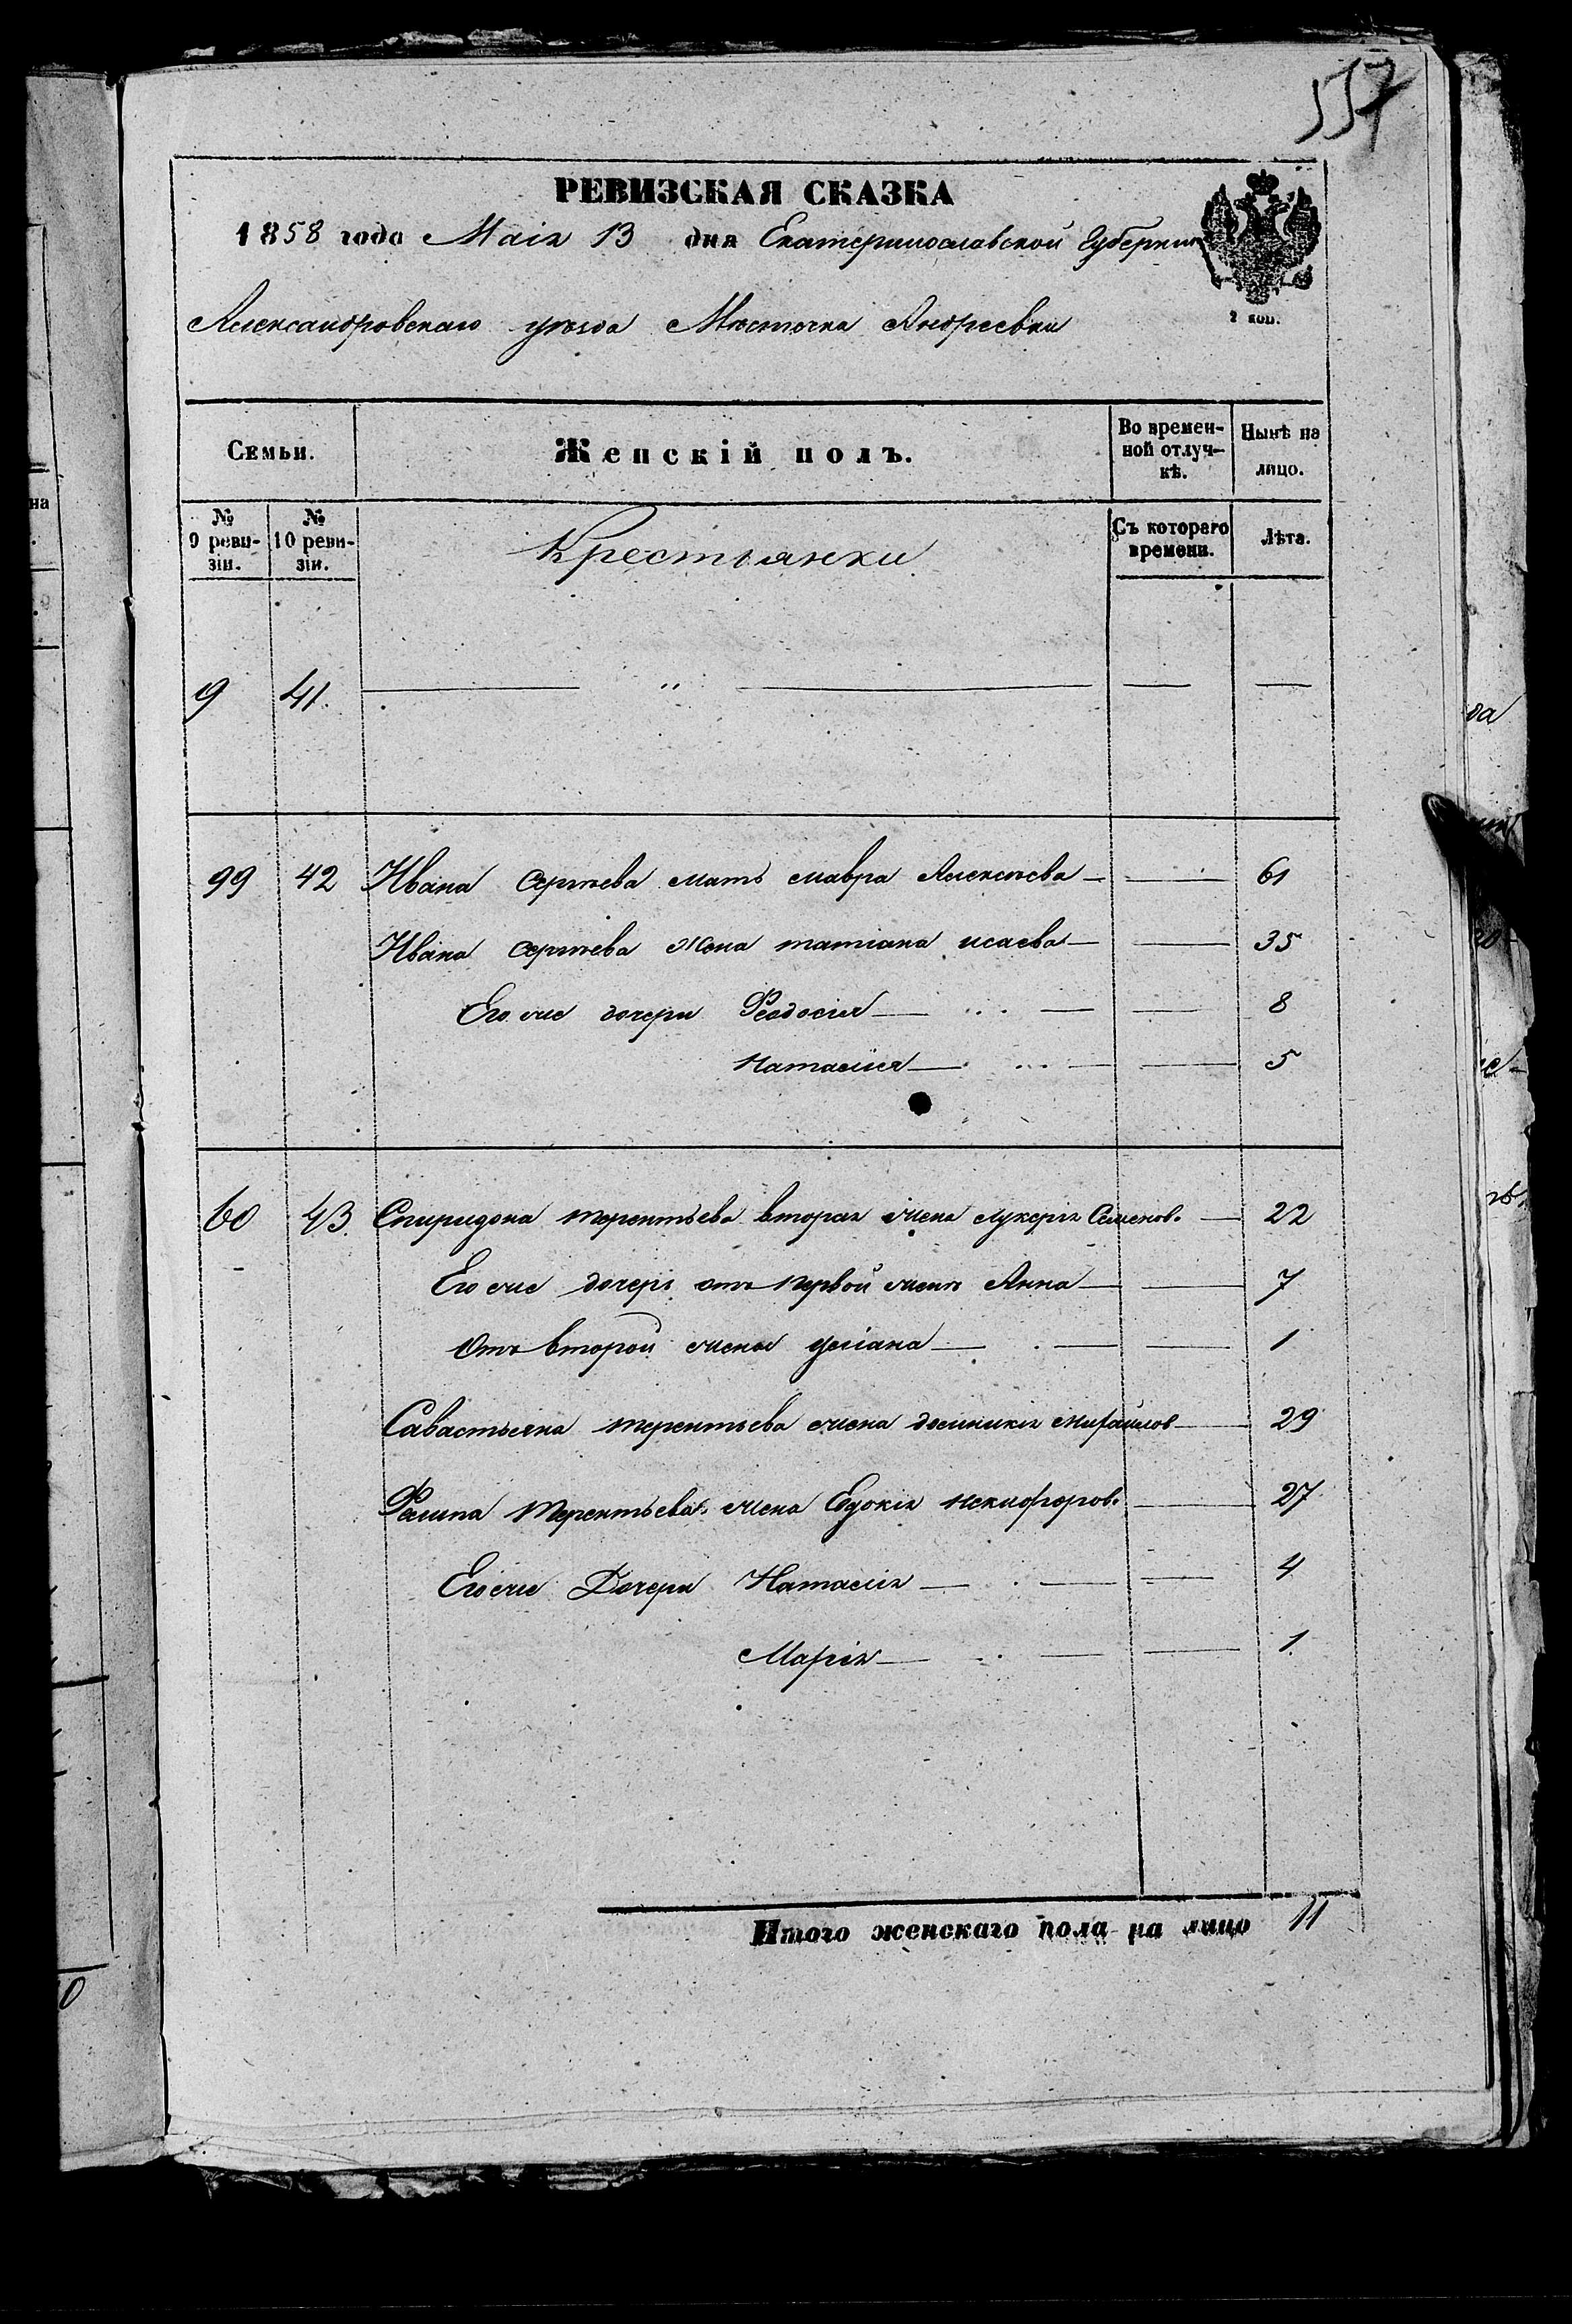 557
РЕВИЗСКАЯ СКАЗКА
1858 года Маія 13 дня Екатеринославской Губерніи
Александровскаго уѣзда Мѣстечка Андреевки
2 коп.
Семьи. Женскій полъ. Во времен-ной отлуч-кѣ. Нынѣ на лицо.
№ 9 реви-зіи. № 10 реви-зіи. Крестьянки Съ котораго времени. Лѣта.
9 41. — " — — —
99 42 Ивана Сергѣева мать мавра Алексѣева — — 61
Ивана Сергѣева жена татіана исаева — — 35
Его же дочери Феодосія — — 8
Наталія — — 5
60 43. Спиридона терентьева вторая жена лукерія Семенов. — 22
Его же дочерь отъ первой жены Анна — — 7
Отъ второй жены уліана — — 1
Савастьяна терентьева жена домникія михайлов — 29
Филипа терентьева жена Евдокія никифоров. — 27
Его же Дочери Наталія — — 4
Марія — — 1
Итого женскаго пола на лицо 11